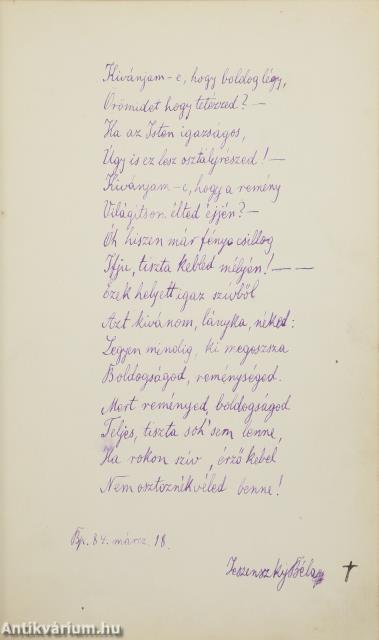 Kivánjam-e, hogy boldog légy,
Örömidet hogy tetézzed? —
Ha az Isten igazságos,
Úgy is ez lesz osztályrészed! —
Kivánjam-e, hogy a remény
Világitson élted éjjén? —
Óh hiszen már fénye csillog
Ifju, tiszta kebled mélyén! — —
Ezek helyett igaz szivből
Azt kivánom, lányka, néked:
Legyen mindig, ki megoszsza
Boldogságod, reménységed.
Mert reményed, boldogságod
Teljes, tiszta soh'sem lenne,
Ha rokon sziv, érző kebel
Nem osztoznék véled benne!
Bp. 84. márcz. 18.
Jeszenszky Béla
Antikvárium.hu